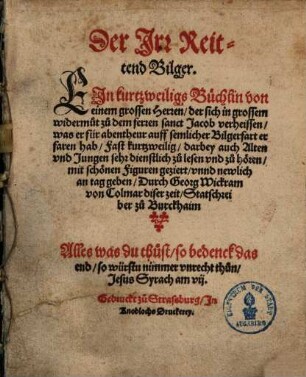 Der Irr Reit-
tend Bilger.
EIn kurtzweiligs Büchlin von
einem grossen Herren/ der sich in grossem
widermůt zů dem ferren sanct Jacob verheissen/
was er für abentheur auff semlicher Bilgerfart er
faren hab/ Fast kurtzweilig/ darbey auch Alten
vnd Jungen sehr dienstlich zů lesen vnd zů hören/
mit schönen Figuren geziert/ vnnd newlich
an tag geben/ Durch Georg Wickram
von Colmar diser zeit/ Statschrei
ber zů Burckhaim
Alles was du thůst/ so bedenck das
end/ so würstu nimmer vnrecht thůn/
Jesus Syrach am vij.
Getruckt zů Strasburg/ In
Knoblochs Druckerey.